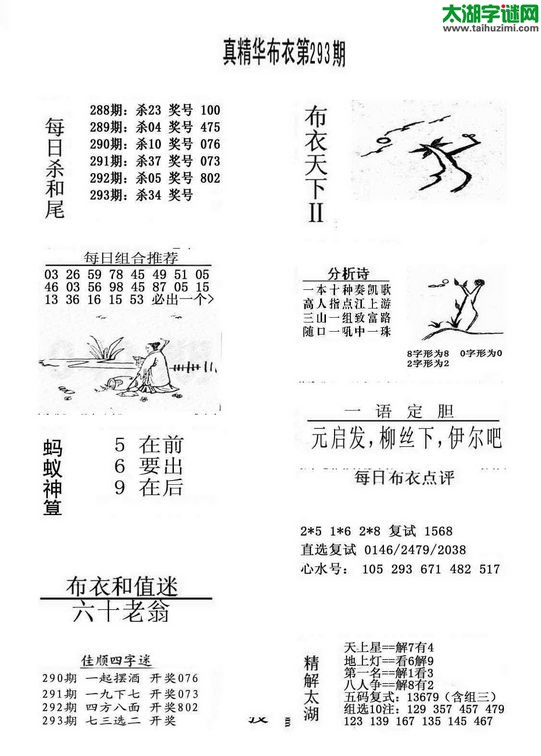 太湖字谜网
www.taihuzimi.com
真精华布衣第293期
每日杀和尾
288期: 杀23 奖号 100
289期: 杀04 奖号 475
290期: 杀10 奖号 076
291期: 杀37 奖号 073
292期: 杀05 奖号 802
293期: 杀34 奖号
布衣天下II
每日组合推荐
03 26 59 78 45 49 51 05
46 03 56 98 45 87 05 15
13 36 16 15 53 必出一个>
分析诗
一本十种奏凯歌
高人指点江上游
三山一组致富路
随口一吼中一珠
8字形为8 0字形为0
2字形为2
一语定胆
元启发,柳丝下,伊尔吧
蚂蚁神算
5 在前
6 要出
9 在后
每日布衣点评
2*5 1*6 2*8 复试 1568
直选复试 0146/2479/2038
心水号: 105 293 671 482 517
布衣和值迷
六十老翁
佳顺四字迷
290期 一起摆酒 开奖076
291期 一九下七 开奖073
292期 四方八面 开奖802
293期 七三选二 开奖
精解太湖
天上星==解7有4
地上灯==看6解9
第一名==解1看3
八人争==解8有2
五码复式: 13679 (含组三)
组选10注: 129 357 457 479
123 139 167 135 145 467